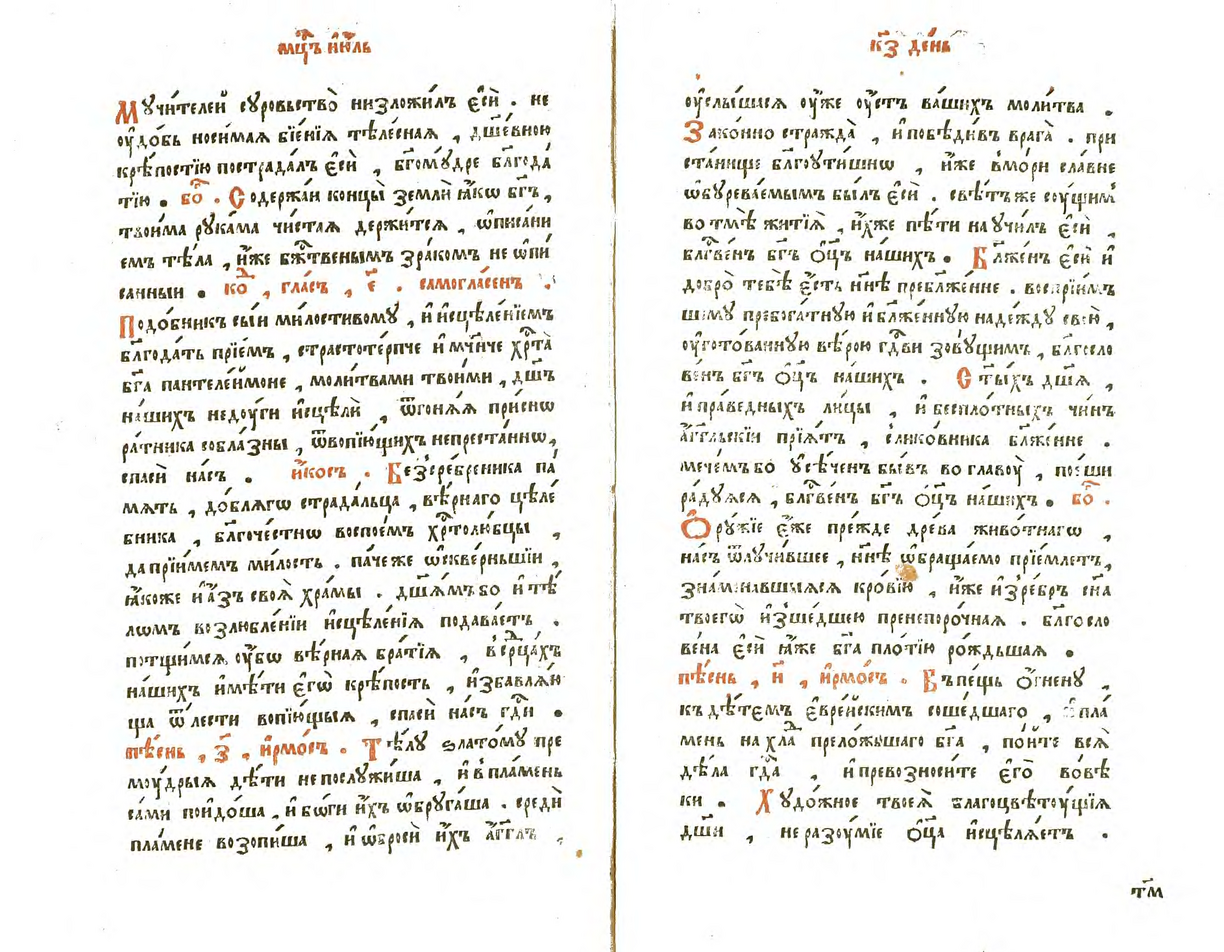 мц҃ъ і҆ю́ль
Мꙋчи́телей сꙋро́вьство низложи́лъ є҆сѝ . не
оу҆до́бь носи́мая бїе́нїя тѣле́сная , дш҃е́вною
крѣ́постїю пострада́лъ є҆сѝ , бг҃омꙋ́дре блг҃ода́
тїю . бо҇ . Содержа́и концы̀ землѝ ꙗ҆́кѡ бг҃ъ ,
твои́ма рꙋка́ма чи́стая держи́тся , ѡ҆писа́ни
емъ тѣ́ла , и҆́же бж҇твенымъ зра́комъ не ѡ҆пи́
санныи . ко҇ , гла́съ , є҃ . самогла́сенъ .
Подо́бникъ сы́и ми́лостивомꙋ , и҆ и҆сцѣле́нїемъ
блг҃ода́ть прїе́мъ , страстоте́рпче и҆ мч҃нче хр҇та̀
бг҃а пантеле́ймоне , моли́твами твои́ми , дш҃ъ
на́шихъ недꙋ́ги и҆сцѣлѝ , ѿгоня́я при́снѡ
ра́тника собла́зны , ѿ вопїю́щихъ непреста́ннѡ ,
спасѝ на́съ . и҆́косъ . Безсре́бреника па́
мять , до́блягѡ страда́льца , вѣ́рнаго цѣле́
бника , бл҃гоче́стнѡ воспое́мъ хр҇толю́бцы ,
да прїи́мемъ ми́лость . па́че же ѡ҆скве́рньшїи ,
ꙗ҆́коже и҆ а҆́зъ своя̀ хра́мы . дш҃я́мъ бо и҆ тѣ
лѡ́мъ возлюбле́нїи и҆сцѣле́нїя подава́етъ .
потщи́мся оу҆́бѡ вѣ́рная бра́тїя , в се́рцахъ
на́шихъ и҆мѣ́ти є҆гѡ̀ крѣ́пость , и҆збавля́ю
ща ѿ ле́сти вопїю́щыя , спасѝ на́съ гд҇и .
пѣ́снь , з҃ , і҆рмо́съ . Тѣ́лꙋ злато́мꙋ пре
моу́дрыя дѣ́ти не послꙋжи́ша , и҆ в пла́мень
са́ми поидо́ша , и҆ бо́ги и҆́хъ ѡ҆брꙋга́ша . средѝ
пла́мене возопи́ша , и҆ ѡ҆бросѝ и҆́хъ а҆́гг҃лъ ,
к҃з де́нь
оу҆слы́шася оу҆́же оу҆́стъ ва́шихъ моли́тва .
Зако́нно стражда̀ , и҆ побѣди́въ врага̀ . при
ста́нище бл҃гоути́шнѡ , и҆́же в мо́ри сла́вне
ѡ҆бꙋрева́емымъ бы́лъ є҆сѝ . свѣ́тъ же сꙋ́щимъ
во тмѣ̀ житїя̀ , и҆́хже пѣ́ти наꙋчи́лъ є҆сѝ ,
блг҇ве́нъ бг҃ъ ѻ҆ц҃ъ на́шихъ . Блже́нъ є҆сѝ и҆
добро̀ тебѣ̀ є҆́сть нн҃ѣ пребл҃же́нне . воспрїи́мъ
шемꙋ пребога́тꙋю и҆ бл҃же́ннꙋю наде́ждꙋ свою̀ ,
оу҆гото́ваннꙋю вѣ́рою гд҇ви зовꙋ́щимъ , бл҃госло
ве́нъ бг҃ъ ѻ҆ц҃ъ на́шихъ . Ст҃ы́хъ дш҃я ,
и҆ пра́ведныхъ ли́цы , и҆ безпло́тныхъ чи́нъ
а҆́гг҃льскїи прїя́тъ , сликовника бл҃же́нне .
мече́мъ бо ꙋсѣ́ченъ бы́въ во главꙋ̀ , пое́ши
ра́дꙋяся , блг҇ве́нъ бг҃ъ ѻ҆ц҃ъ на́шихъ . бо҇ .
Ѻ҆рꙋ́жїе є҆́же пре́жде дре́ва живо́тнагѡ ,
на́съ ѿлꙋчи́вшее , нн҃ѣ ѡ҆браща́емо прїе́млетъ ,
зна́менавшыяся кро́вїю , и҆́же и҆з ре́бръ сн҃а
твоегѡ̀ и҆зше́дшею пренепоро́чная . бл҃госло
ве́на є҆сѝ ꙗ҆́же бг҃а пло́тїю ро́ждьшая .
пѣ́снь , и҃ , і҆рмо́съ . Въ пе́щь ѻ҆́гненꙋ ,
къ дѣ́темъ є҆вре́йскимъ соше́дшаго , и҆ пла́
мень на хла҇ прело́жьшаго бг҃а , по́ите вся̀
дѣ́ла гд҇а , и҆ превозноси́те є҆го̀ во вѣ́
ки . Хꙋдо́жное твоея̀ благоцвѣтꙋ́щїя
дш҃и , неразꙋ́мїе ѻ҆ц҃а и҆сцѣля́етъ .
тм҃